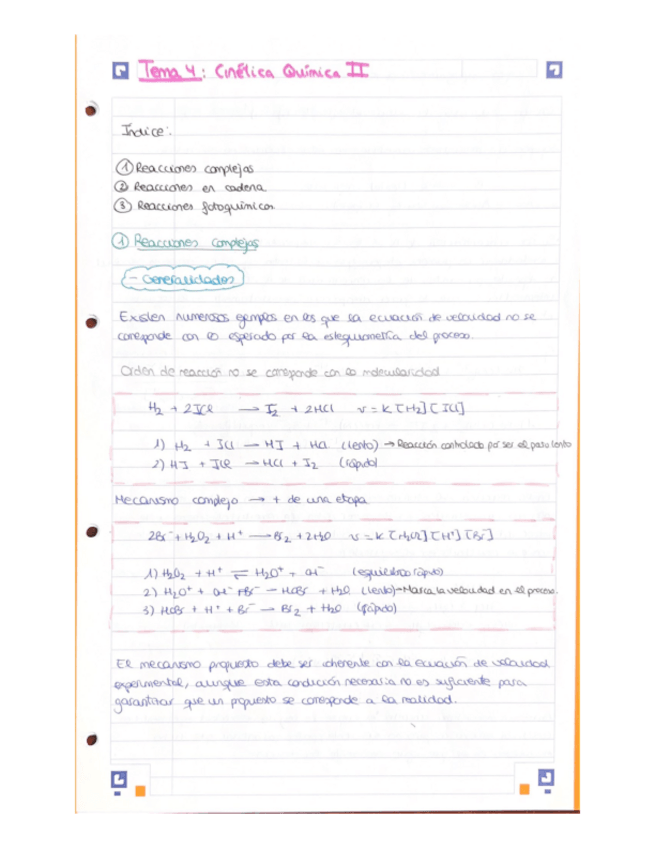 Tema 4: Cinética Química II
Índice:
① Reacciones complejas
② Reacciones en cadena
③ Reacciones fotoquímicas
① Reacciones complejas
- Generalidades
Existen numerosos ejemplos en los que la ecuación de velocidad no se
corresponde con lo esperado por la estequiometría del proceso.
Orden de reacción no se corresponde con la molecularidad
H₂ + 2ICl → I₂ + 2HCl v = k [H₂][ICl]
1) H₂ + ICl → HI + HCl (lento) → Reacción controlada por ser el paso lento
2) HI + ICl → HCl + I₂ (rápido)
Mecanismo complejo → + de una etapa
2Br⁻ + H₂O₂ + H⁺ → Br₂ + 2H₂O v = k [H₂O₂][H⁺][Br⁻]
1) H₂O₂ + H⁺ ⇌ H₂O⁺ + OH⁻ (equilibrio rápido)
2) H₂O⁺ + OH⁻ + Br⁻ → HOBr + H₂O (lento) → Marca la velocidad en el proceso.
3) HOBr + H⁺ + Br⁻ → Br₂ + H₂O (rápido)
El mecanismo propuesto debe ser coherente con la ecuación de velocidad
experimental, aunque esta condición necesaria no es suficiente para
garantizar que un propuesto se corresponde a la realidad.